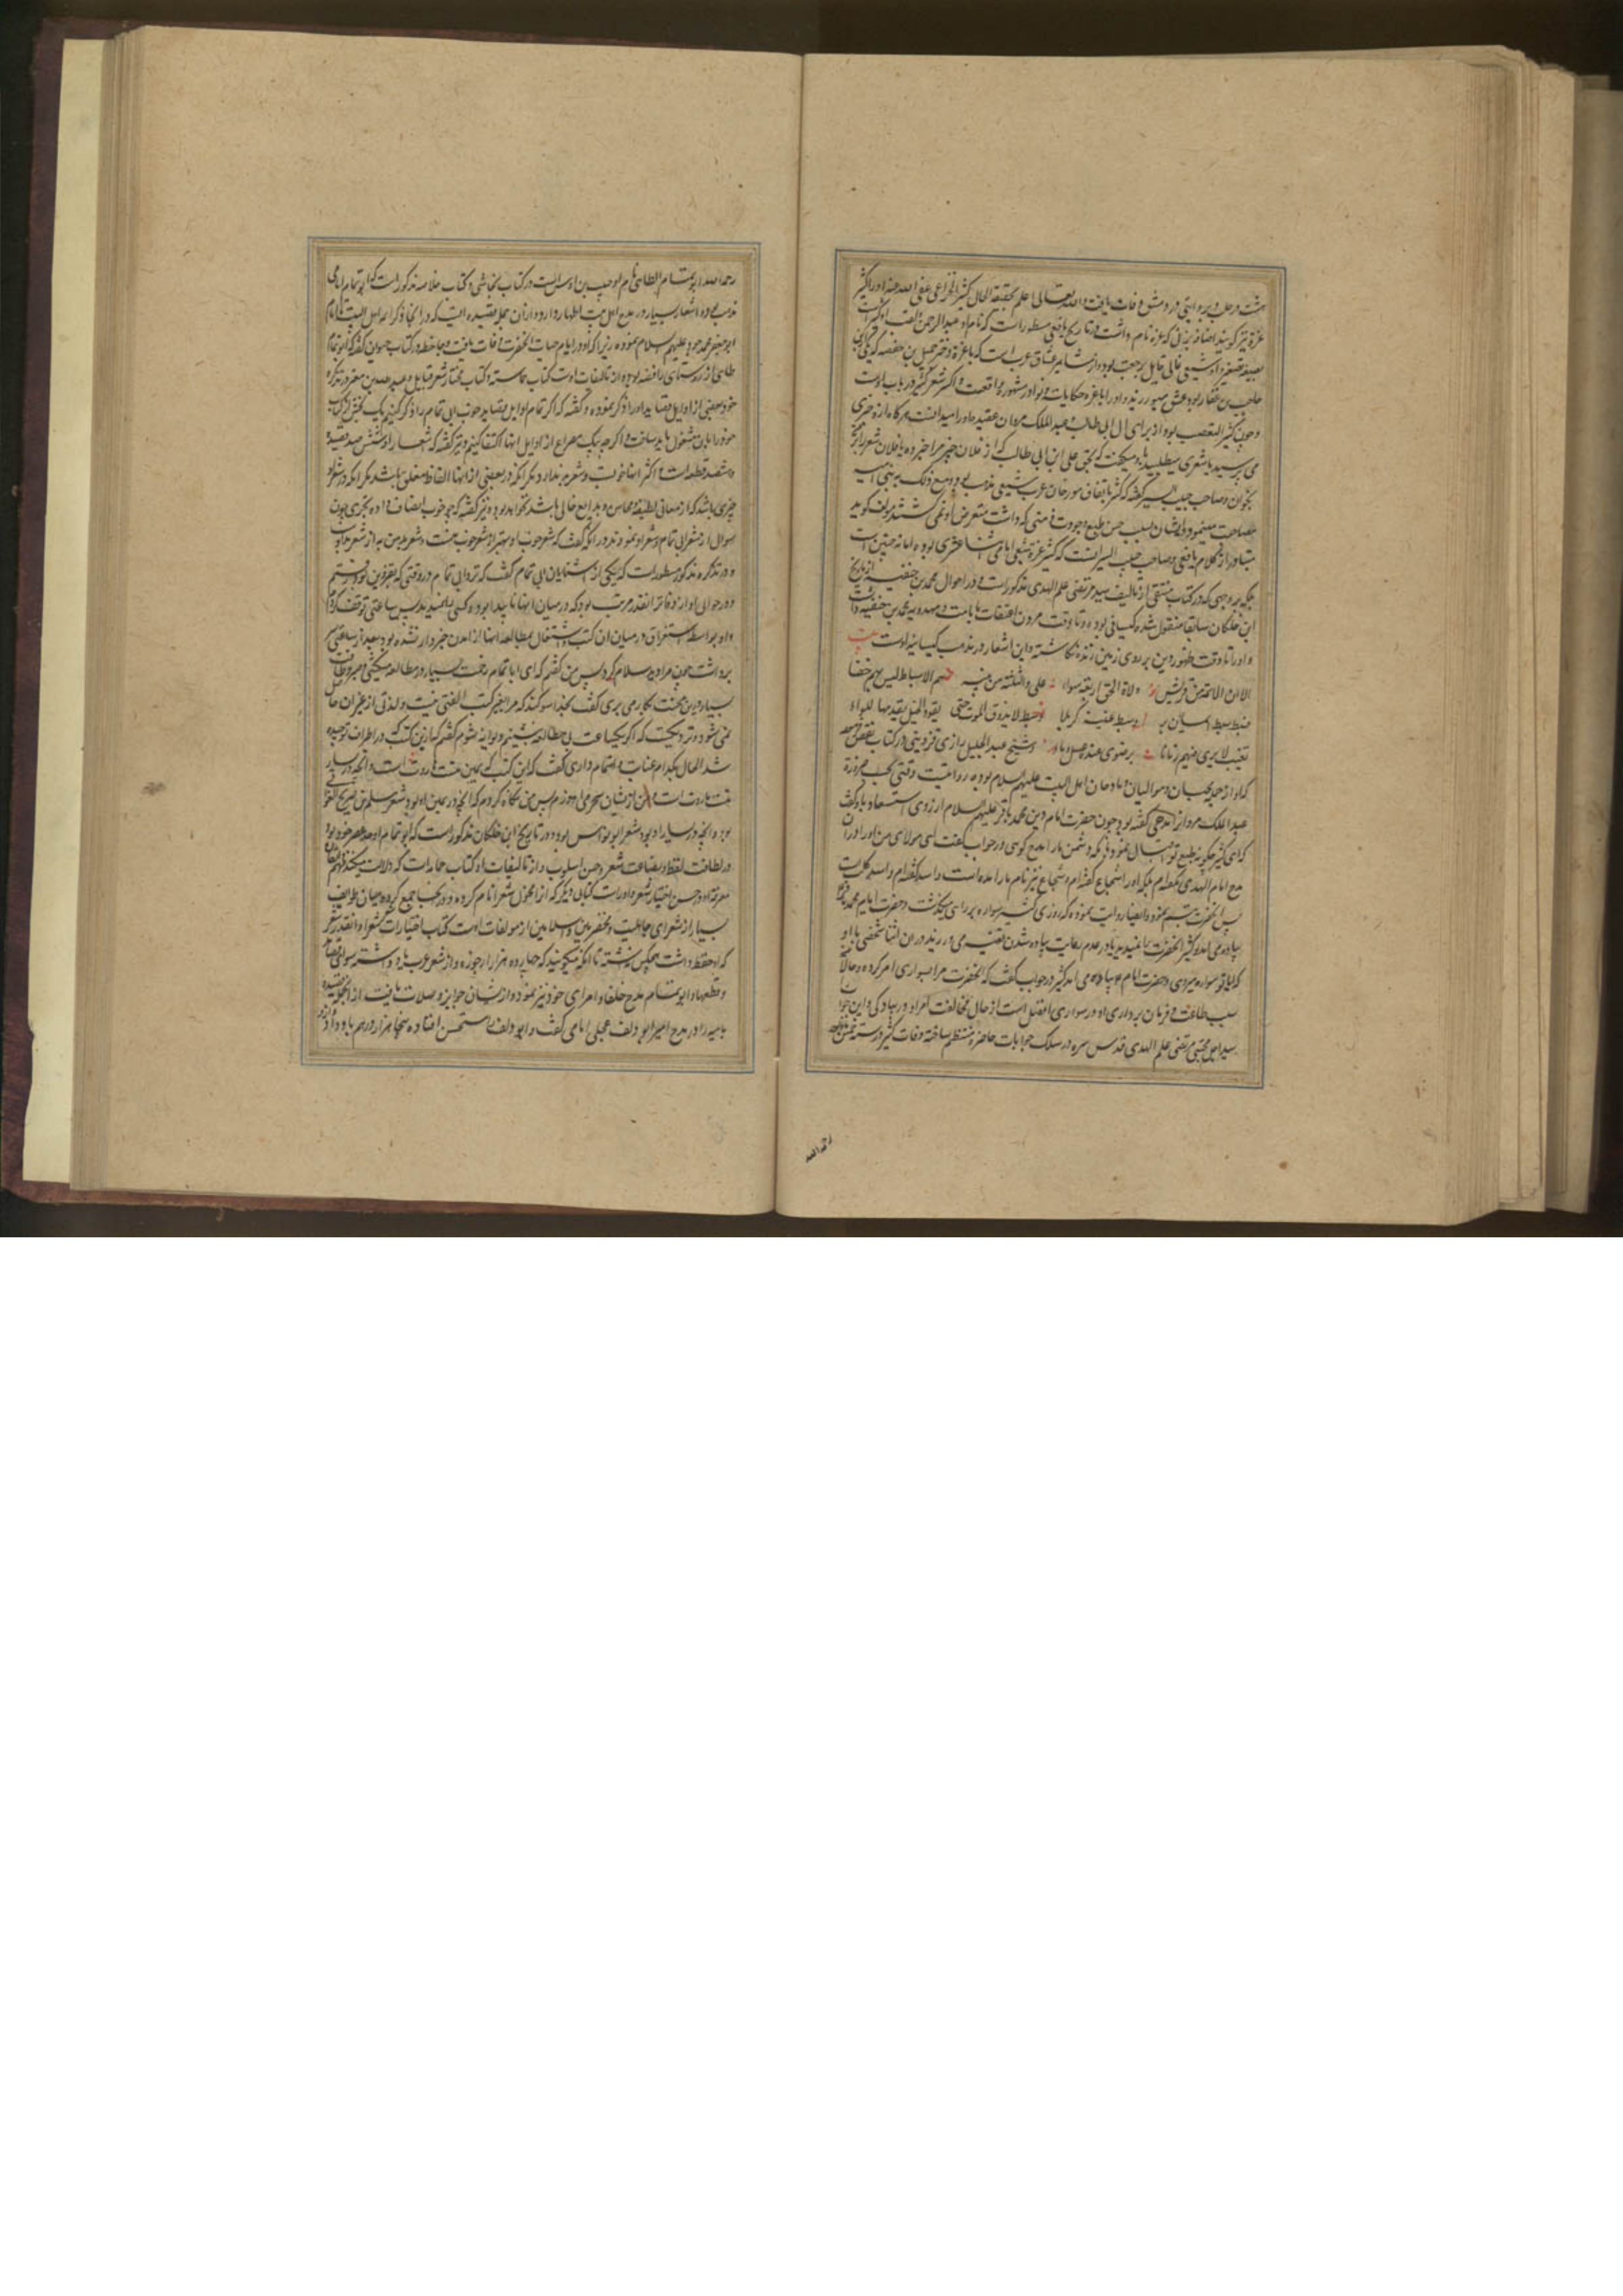 هشت در حلب و بروایتی در دمشق وفات یافت والله تعالی اعلم بحقیقة الحال کثیر الخزاعی عفی الله عنه او را کثیر
عزة نیز گویند باضافه بزنی که عزه نام داشت و در تاریخ یافعی مسطور است که نام او عبدالرحمن و لقب او کثیر است
بصیغه تصغیر و او شیعی غالی قایل برجعت بود و از مشاهیر عشاق عرب است که با عزة دختر جمیل بن حفصه که یکی از بنی
حاجب بن غفار بود عشق میورزیده و او را با عزه حکایات و نوادر مشهوره واقعست و اکثر شعر کثیر در باب اوست
و چون کثیر التعصب بود از برای ال ابی طالب عبدالملک مروان عقیده او را میدانست هرگاه از و خبری
می پرسید یا شعری میطلبید با و میگفت که بحق علی ابن ابی طالب که از فلان خبر مرا خبر ده یا فلان شعر را بجهة
بخوان و صاحب حبیب السیر گفته که کثیر باتفاق مورخان عرب شیعی مذهب بود و مع ذلک با بنی امیه
مصاحبت مینمود و ایشان بسبب حسن طبع وجودت ذهنی که داشت متعرض او نمی شدند مولف گوید
متبادر از کلام یافعی و صاحب حبیب السیر انست که کثیر عزة شیعی امامی اثنا عشری بوده اما نه چنین است
بلکه بر وجهی که در کتاب منتقی از تالیف سید مرتضی علم الهدی مذکور است و در احوال محمد بن حنفیه از تاریخ
ابن خلکان سابقا منقول شده کیسانی بوده و تا وقت مردن اعتقاد بامامت و مهدویه محمد بن حنفیه داشت
و او را تا وقت ظهور دین بر روی زمین زنده انکاشته و این اشعار در مذهب کیسانیه اوست بیت
الا ان الائمة من قریش ولاة الحق اربعة سواء علی و الثلثة من بنیه هم الاسباط لیس بهم خفا
فسبط سبط ایمان و بر و سبط غیبته کربلا و سبط لا یذوق الموت حتی یقود الخیل یقدمها اللواء
تغیب لا یری فیهم زمانا برضوی عنده عسل و ماء و شیخ عبدالجلیل رازی قزوینی در کتاب نقض گفته
که او از جمله محبان و موالیان و مادحان اهل البیت علیهم السلام بوده روایتست وقتی بحسب ضرورة
عبدالملک مروان را مدحی گفته بود چون حضرت امام دین محمد باقر علیهم السلام ارزوی استبعاد با و گفت
که ای کثیر چگونه طبع تو اقبال نمود که دشمن ما را مدح گوئی در جواب گفت ای مولای من او را در ان
مدح امام الهدی نگفته ام بلکه او را شجاع گفته ام و شجاع نیز نام مار امده است و اسد گفته ام و اسد کلب است
پس انحضرت تبسم نموده و ایضا روایت نموده که روزی کثیر سواره بر راهی میگذشت و حضرت امام محمد باقر
پیاده می امد و کثیر انحضرت را میدید و در عدم رعایت پیاده شدن تقیه می ورزید در ان اثنا شخصی با او گفت
که ایا تو سواره میروی و حضرت امام پیاده می اید کثیر در جواب گفت که انحضرت مرا بسواری امر کرده و حالا
سبب طاعت و فرمان برداری او در سواری افضل است از حال مخالفت امر او در پیادگی و این جوابرا
سید اجل مجتبی مرتضی علم الهدی قدس سره در سلک جوابات حاضره منتظم ساخته وفات کثیر در سنه خمس و مائه
رحمه الله
رحمه الله ابو تمام الطائی نام او حبیب بن اوس است در کتاب نجاشی و کتاب خلاصه مذکور است که ابو تمام امامی
مذهب بود و اشعار بسیار در مدح اهل بیت اظهار دارد و از ان جمله قصیده ایست که در انجا ذکر ائمه اهل البیت تا امام
ابو جعفر محمد جواد علیهم السلام نموده زیرا که او در ایام حیات انحضرت وفات یافت و جاحظ در کتاب حیوان گفته که ابو تمام
طائی از روسای رافضه بوده و از تالیفات اوست کتاب حماسه و کتاب مختار شعر قبایل و عبدالله بن معتز در تذکره
خود بعضی از اوایل قصاید او را ذکر نموده و گفته که اگر تمام اوایل قصاید خوب ابی تمام را ذکر کنیم یک بخش از کتاب
خود را بان مشغول باید ساخت و اگر چه بیک مصراع از اوایل انها اکتفا کنیم و نیز گفته که اشعار او ششصد قصیده
و هشتصد قطعه است و اکثر انها خوبست و شعر بد ندارد مگر انکه در بعضی از انها الفاظ مغلق باشد مگر انکه در شعر او
چیزی باشد که از معانی لطیفه و محاسن و بدایع خالی باشد نخواهد بود و نیز گفته که چه خوب انصاف داده بحتری چون
سوال از شعر ابی تمام و شعر او نمودند در انکه گفت که شعر خوب او بهتر از شعر خوب منست و شعر بد من به از شعر بد او
و در تذکره مذکور مسطور است که یکی از اشنایان ابی تمام گفت که نزد ابی تمام در وقتی که بقزوین بود رفتم
و در حوالی او از دفاتر انقدر مرتب بود که در میان انها ناپیدا بود و کسی را نمیدید پس ساعتی توقف کردم
و او بواسطه استغراق در میان ان کتب و اشتغال بمطالعه انها از امدن من خبردار نشده بود بعد از ساعتی سر
برداشت چون مرا دید سلام کرد پس من گفتم که ای ابا تمام زحمت بسیار در مطالعه میکشی و صبر و طاقت
بسیار درین محنت بکار می بری گفت بخدا سوگند که مرا بغیر کتب الفتی نیست و لذتی از غیر ان حاصل
نمی شود و نزدیکست که اگر یکساعت بی مطالعه بنشینم دیوانه شوم گفتم که از این کتب که در اطراف تو چیده
شد الحال بکدام عنایت و اهتمام داری گفت که این کتب که بیمین منست هاروت است و انچه در یسار
منست ماروت است و من از میان سحر می اموزم پس من نگاه کردم که انچه در یمین او بود شعر مسلم بن صریح الغوانی
بوده و انچه در یسار او بود شعر ابو نواس بود و در تاریخ ابن خلکان مذکور است که ابو تمام اوحد عصر خود بود
در لطافت لفظ و بضاعت شعر و حسن اسلوب و از تالیفات او کتاب حماسه است که دلالت میکند بفهم و اتقان
معرفت او و حسن اختیار شعر و او راست کتابی دیگر که از فحول شعرا نام کرده و در انجا جمع کرده میان طوایف
بسیار از شعرای جاهلیت و مخضرمین و اسلامین از مولفات اوست کتاب اختیارات شعرا و انقدر شعر
که او حفظ داشت هیچکس نداشته تا انکه میگویند که چهارده هزار ارجوزه از شعر عرب یاد داشته سوای قصاید
و قطعها و ابو تمام مدح خلفا و امرای خود نیز نموده و از ایشان جوایز و صلات یافت از انجمله قصیده
بائیه را در مدح امیر ابو دلف عجلی امامی گفت و ابو دلف را مستحسن افتاده پنجاه هزار درهم باو داد